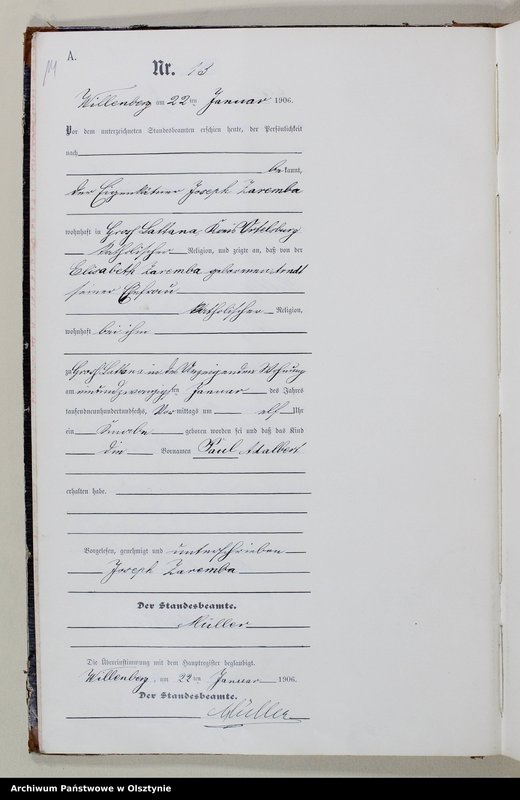 A.
Nr. 13
Willenberg am 22 ten Januar 1906.
Vor dem unterzeichneten Standesbeamten erschien heute, der Persönlichkeit
nach
be kannt,
der Eigenkätner Joseph Zaremba
wohnhaft in Groß Lattana Kreis Ortelsburg
katholischer Religion, und zeigte an, daß von der
Elisabeth Zaremba geborenen Arndt
seiner Ehefrau
katholischer Religion,
wohnhaft bei ihm
zu Groß Lattana in des Anzeigenden Wohnung
am einundzwanzigsten Januar des Jahres
tausendneunhundertundsechs, Vor mittags um elf Uhr
ein Knabe geboren worden sei und daß das Kind
die Vornamen Paul Adalbert
erhalten habe.
Vorgelesen, genehmigt und unterschrieben
Joseph Zaremba
Der Standesbeamte.
Müller
Die Übereinstimmung mit dem Hauptregister beglaubigt.
Willenberg, am 22 ten Januar 1906.
Der Standesbeamte.
Müller
Archiwum Państwowe w Olsztynie